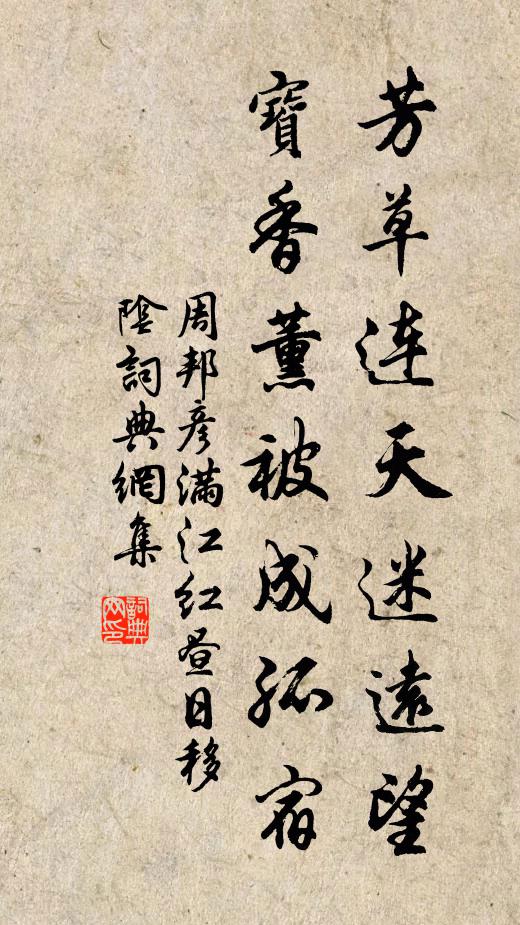 芳草连天迷遠望
寶香薰被成孤宿
周邦彦滿江红昼日移
陰詞典網集
詞典
网印